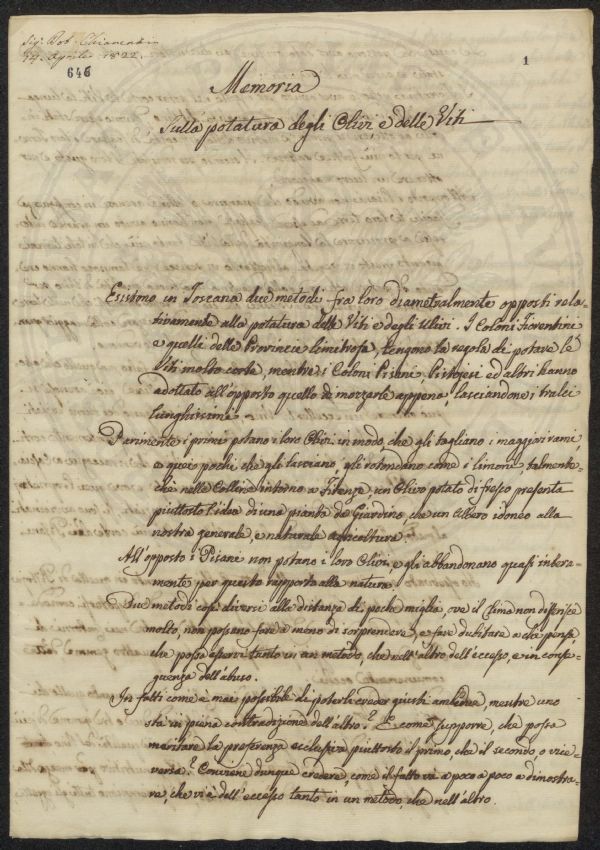 Sig. Dot. Chiarenti
14. Aprile 1822.
646
1
Memoria
Sulla potatura degli Olivi, e delle Viti
Esistono in Toscana due metodi fra loro diametralmente opposti rela-
tivamente alla potatura delle Viti e degli Ulivi. I Coloni Fiorentini
e quelli delle Provincie limitrofe, tengono la regola di potare le
Viti molto corte, mentre i Coloni Pisani, Pistojesi ed altri hanno
adottato all'opposto quello di mozzarle appena, lasciandone i tralci
lunghissimi.
Parimente i primi potano i loro Olivi in modo, che gli tagliano i maggiori rami,
e quei pochi che gli lasciano, gli rotondano come i limoni talmente-
chè nelle Colline intorno a Firenze un Olivo potato di fresco presenta
piuttosto l'idea di una pianta da Giardino, che un Albero idoneo alla
nostra generale, e naturale agricoltura.
All'opposto i Pisani non potano i loro Olivi, e gli abbandonano quasi intera-
mente per questo rapporto alla natura.
Due metodi così diversi alla distanza di poche miglia, ove il Clima non differisce
molto, non possono fare a meno di sorprendere, e fare dubitare a chi pensa,
che possa esservi tanto in un metodo, che nell'altro dell'eccesso, e in conse-
guenza dell'abuso.
In fatti come è mai possibile di poterli creder giusti ambedue, mentre uno
sta in piena contradizione dell'altro? E come supporre, che possa
meritare la preferenza esclusiva piuttosto il primo, che il secondo, o vice-
versa? Conviene dunque credere, come il fatto va a poco a poco a dimostra-
re, che vi è dell'eccesso tanto in un metodo, che nell'altro.